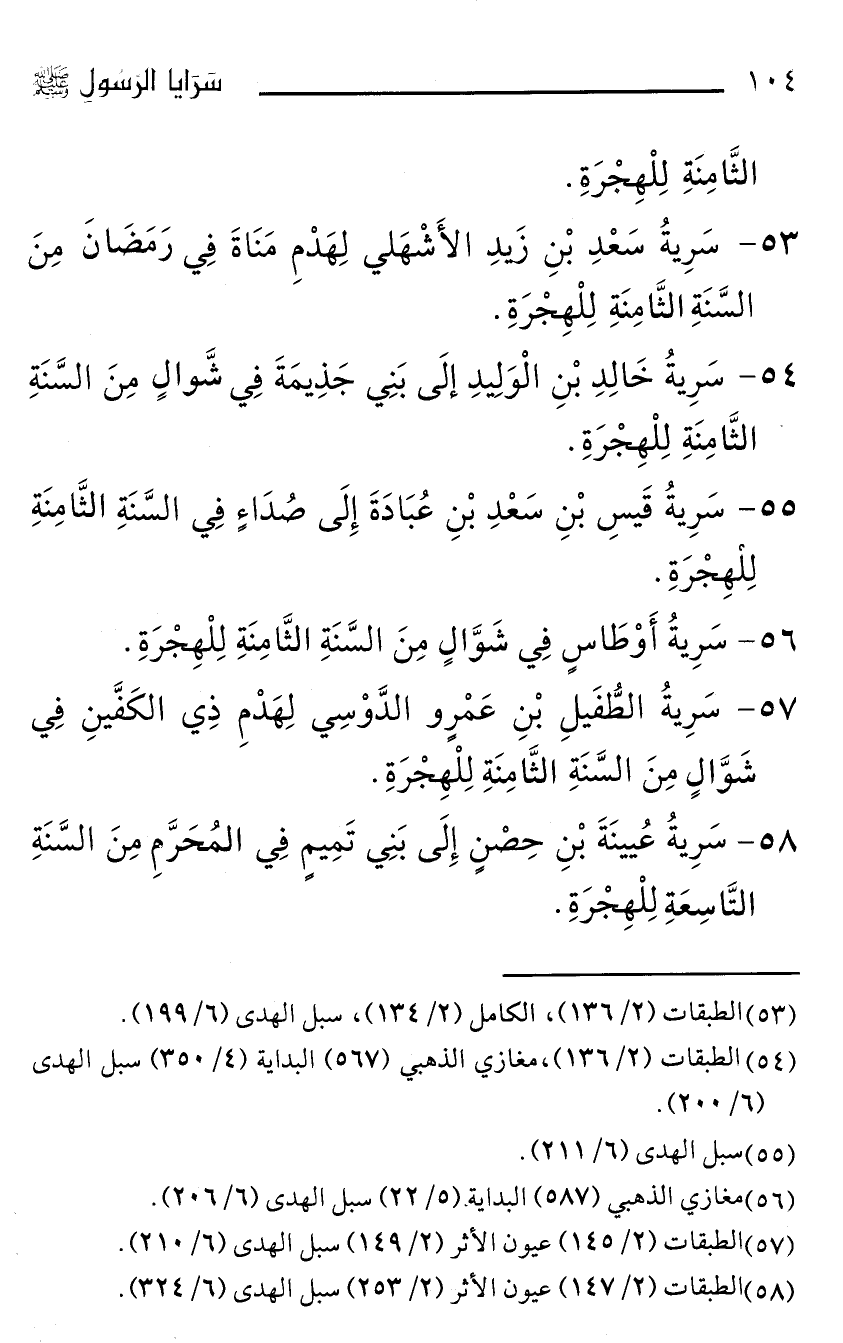 ١٠٤ سَرَايا الرَسُولِ ﷺ
الثَّامِنَةِ لِلْهِجْرَةِ.
٥٣- سَرِيةُ سَعْدِ بْنِ زَيدِ الأَشْهَلي لِهَدْمِ مَنَاةَ فِي رَمَضَانَ مِنَ
السَّنَةِ الثَّامِنَةِ لِلْهِجْرَةِ.
٥٤- سَرِيةُ خَالِدِ بْنِ الْوَلِيدِ إلَى بَنِي جَذِيمَةَ فِي شَّوالٍ مِنَ السَّنَةِ
الثَّامِنَةِ لِلْهِجْرَةِ.
٥٥- سَرِيةُ قَيسِ بْنِ سَعْدِ بْنِ عُبَادَةَ إِلَى صُدَاءٍ فِي السَّنَةِ الثَّامِنَةِ
لِلْهِجْرَةِ.
٥٦- سَرِيةُ أَوْطَاسٍ فِي شَوَّالٍ مِنَ السَّنَةِ الثَّامِنَةِ لِلْهِجْرَةِ.
٥٧- سَرِيةُ الطُّفَيلِ بْنِ عَمْرٍو الدَّوْسِي لِهَدْمِ ذِي الكَفَّينِ فِي
شَوَّالٍ مِنَ السَّنَةِ الثَّامِنَةِ لِلْهِجْرَةِ.
٥٨- سَرِيةُ عُيينَةَ بْنِ حِصْنٍ إِلَى بَنِي تَمِيمٍ فِي المُحَرَّمِ مِنَ السَّنَةِ
التَّاسِعَةِ لِلْهِجْرَةِ.
(٥٣)الطبقات (٢/ ١٣٦)، الكامل (٢/ ١٣٤)، سبل الهدى (٦/ ١٩٩).
(٥٤) الطبقات (٢/ ١٣٦)،مغازي الذهبي (٥٦٧) البداية (٤/ ٣٥٠) سبل الهدى
(٦/ ٢٠٠).
(٥٥)سبل الهدى (٦/ ٢١١).
(٥٦)مغازي الذهبي (٥٨٧) البداية.(٥/ ٢٢) سبل الهدى (٦/ ٢٠٦).
(٥٧)الطبقات (٢/ ١٤٥) عيون الأثر (٢/ ١٤٩) سبل الهدى (٦/ ٢١٠).
(٥٨)الطبقات (٢/ ١٤٧) عيون الأثر (٢/ ٢٥٣) سبل الهدى (٦/ ٣٢٤).